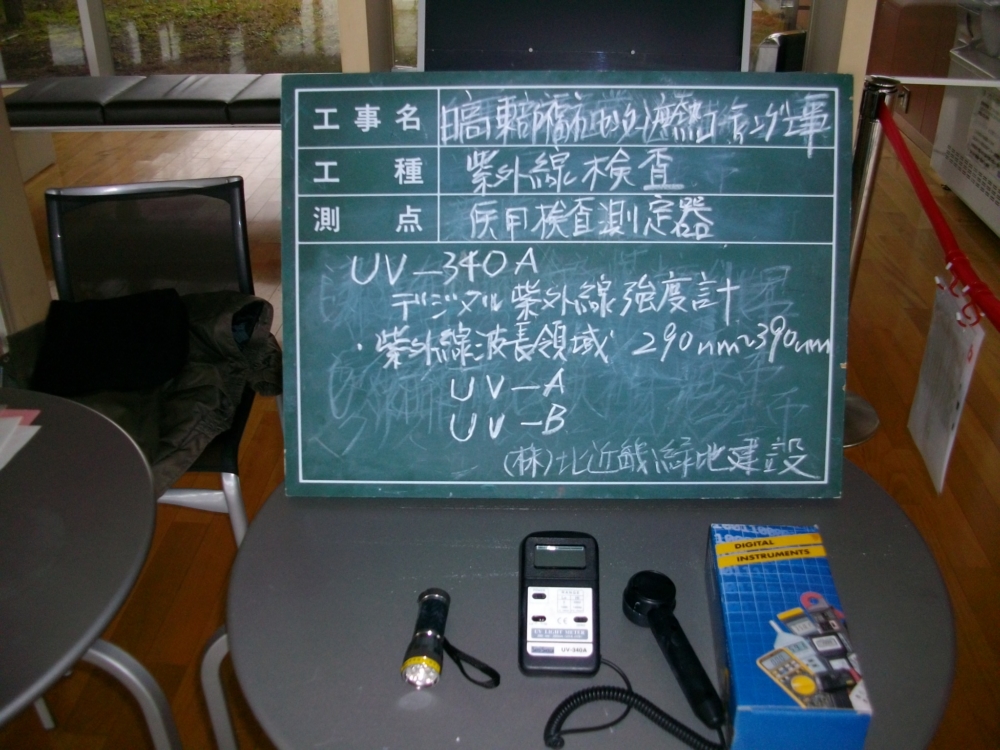 工事名
工種 紫外線検査
測点 使用検査測定器
UV-340A
デジタル紫外線強度計
・紫外線波長領域 290nm~390nm
UV-A
UV-B
(株)北近畿緑地建設
DIGITAL
INSTRUMENTS
UV LIGHT METER
UV-340A